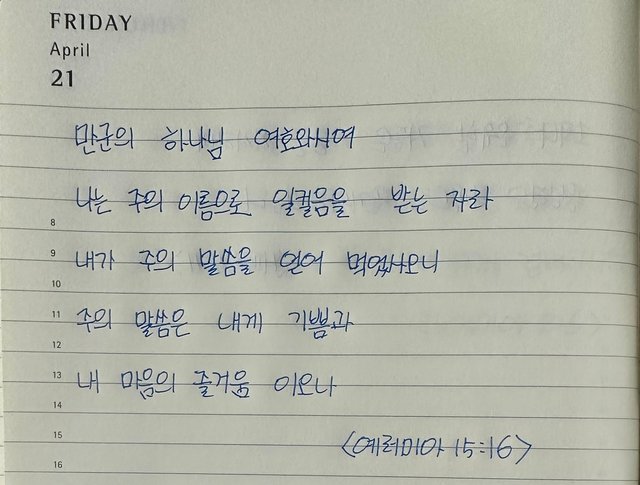 FRIDAY
April
21
만군의 하나님 여호와시여
나는 주의 이름으로 일컬음을 받는 자라
8
9 내가 주의 말씀을 얻어 먹었사오니
10
11 주의 말씀은 내게 기쁨과
12
13 내 마음의 즐거움 이오나
14
15 <예러미아 15:16>
16